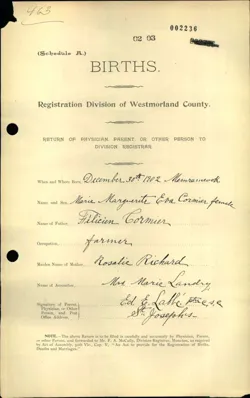 463
002230
02 03
(Schedule A.)
BIRTHS.
Registration Division of Westmorland County.
RETURN OF PHYSICIAN PARENT, OR OTHER PERSON TO
DIVISION REGISTRAR
When and Where Born, December 30th 1902 Memramcook
Name and Sex, Marie Marguerite Eva Cormier, female
Name of Father, Filicien Cormier
Occupation, farmer
Maiden Name of Mother, Rosalie Richard
Name of Accoucheur, Mrs Marie Landry
Signature of Parent, Physician, or Other Person, and Post Office Address. Ed E Labbé
St Josephs
NOTE.—The above Return is to be filled in carefully and accurately by Physician, Parent,
or other Person, and forwarded to Dr. F. A. McCully, Division Registrar, Moncton, as required by
Act of Assembly, 50th Vic., Cap. V., "An Act to provide for the Registration of Births,
Deaths and Marriages."